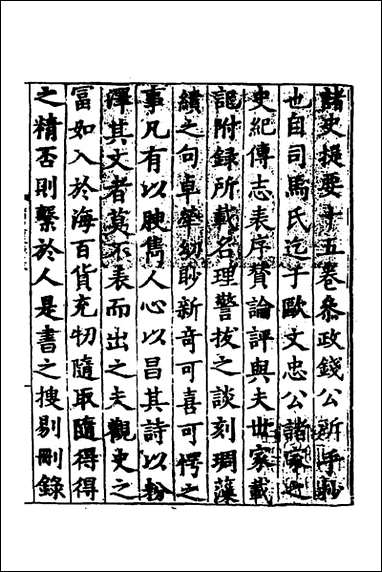 諸史提要十五卷叅政錢公所手抄
也自司馬氏迄于歐文忠公諸家之
史紀傳志表序賛論評與夫世家載
記附録所載名理警拔之談刻琱藻
繢之句卓犖紗眇新奇可喜可愕之
事凡有以腴雋人心以昌其詩以粉
澤其文者莫不表而出之夫觀史之
富如入於海百貨充牣隨取隨得得
之精否則繫於人是書之搜剔刪錄